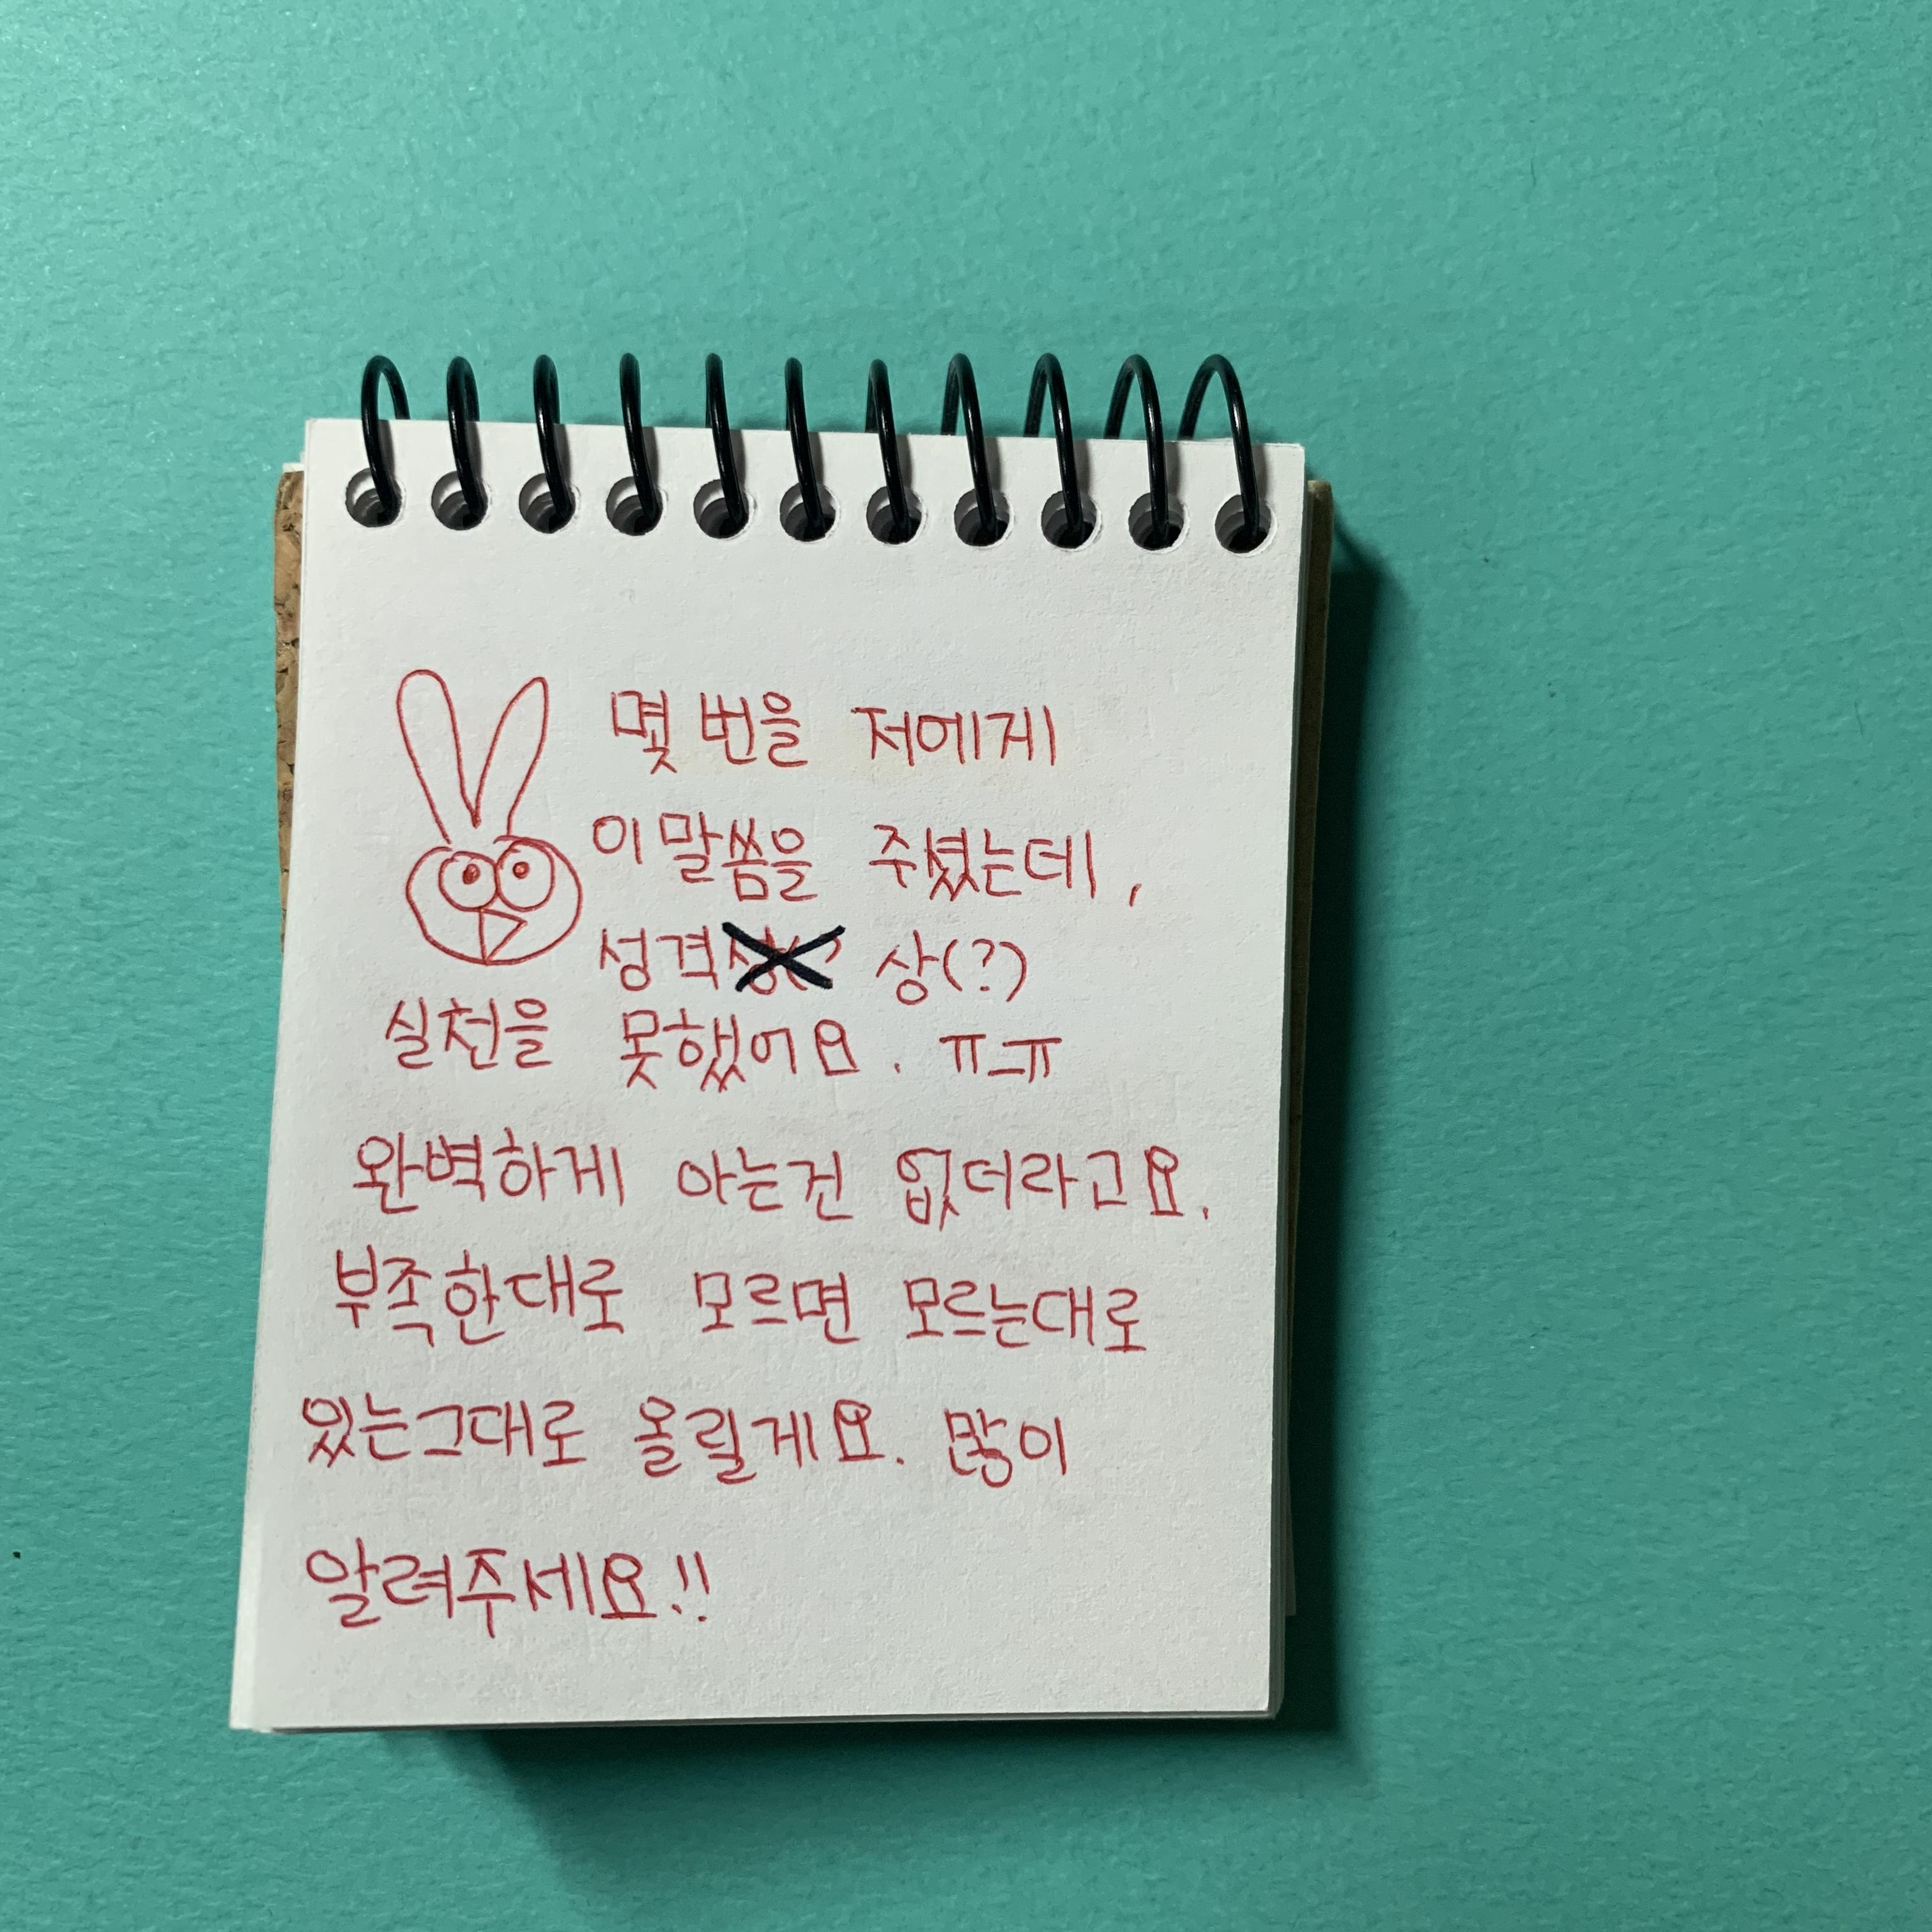 몇 번을 저에게
이말씀을 주셨는데,
성격 상(?)
실천을 못했어요. ㅠ_ㅠ
완벽하게 아는건 없더라고요.
부족한대로 모르면 모르는대로
있는그대로 올릴게요. 많이
알려주세요!!